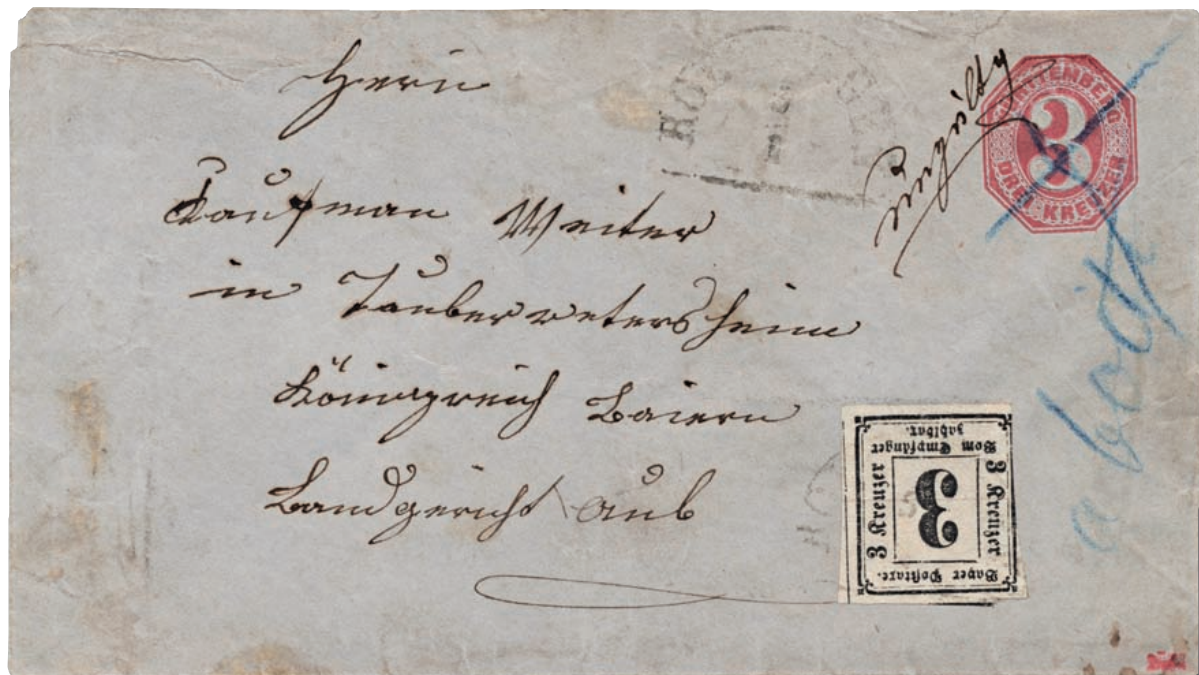 Herrn
Kaufman Weiter
in Tauberrettersheim
Königreich Baiern
Landgericht Aub
ungültig
WÜRTTEMBERG
3
DREI KREUZER
Bayer. Posttaxe.
3 Kreuzer
3
3 Kreuzer
Vom Empfänger
zahlbar.